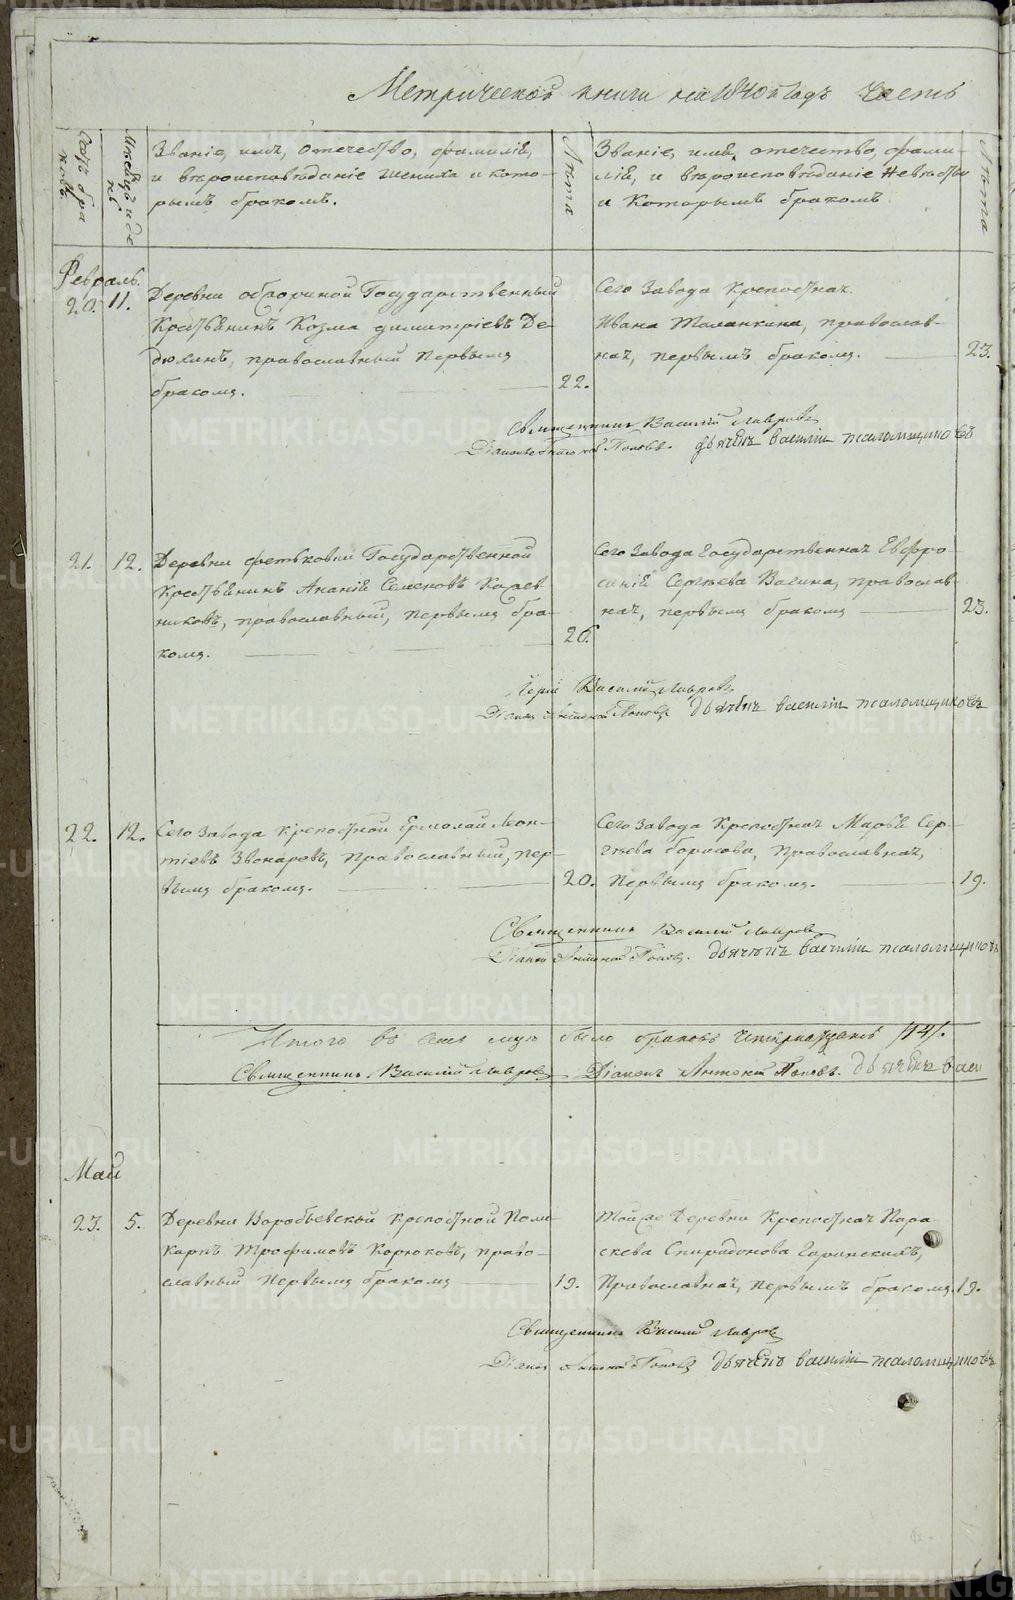 Метрической книги на 1840й годъ часть
Счетъ бра
ковъ.
Мѣсяцъ и де
нь
Званіе, имя, отечество, фамилія,
и вѣроисповѣданіе жениха и кото-
рымъ бракомъ.
Лѣта
Званіе, имя, отечество, фами-
лія, и вѣроисповѣданіе Невѣсты
и Которымъ бракомъ
Лѣта
Февраль.
20. 11.
Деревни Государственный
Крестьянинъ Козма димитріевъ Де-
дюхинъ, православный Первымъ
бракомъ.
22.
Сего Завода крепостная
Ивана Таланкина, православ-
ная, первымъ бракомъ.
23.
Священникъ Василій Лавровъ
Діаконъ Поповъ. дьячекъ василіи псаломщиковъ
21. 12.
Деревни Государственной
крестьянинъ Ананій Семеновъ Кожев
никовъ, православный, первымъ бра-
комъ.
26.
Сего Завода государственная Евфро-
синія Сергѣева Вагина, православ-
ная, первымъ бракомъ
23.
Іерей Василій Лавровъ
Діаконъ Антоній Поповъ дьячекъ василіи псаломщиковъ
22. 12.
Сего Завода крѣпостной Ермолай Леон-
тіевъ Звонаревъ, Православный, пер-
вымъ бракомъ.
20.
Сего Завода Крепостная Марѳа Сер-
гѣева Борисова, Православная,
Первымъ бракомъ.
19.
Священникъ Василій Лавровъ
Діаконъ Антоній Поповъ. дьячокъ василіи псаломщиковъ
Итого въ было браковъ четырнадцать /14/.
Священникъ Василій Лавровъ Діаконъ Антоній Поповъ. дьячекъ васи
Май
23. 5.
Деревни Воробьевской крепостной Поли-
карпъ Трофимовъ Корюковъ, право-
славный Первымъ бракомъ
19.
Тойже Деревни Крепостная Пара-
скева Спиридонова Горинскихъ,
Православная, первымъ бракомъ.
19.
Священникъ Василій Лавровъ
Діаконъ Антоній Поповъ дьячекъ василіи псаломщиковъ
METRIKI.GASO-URAL.RU